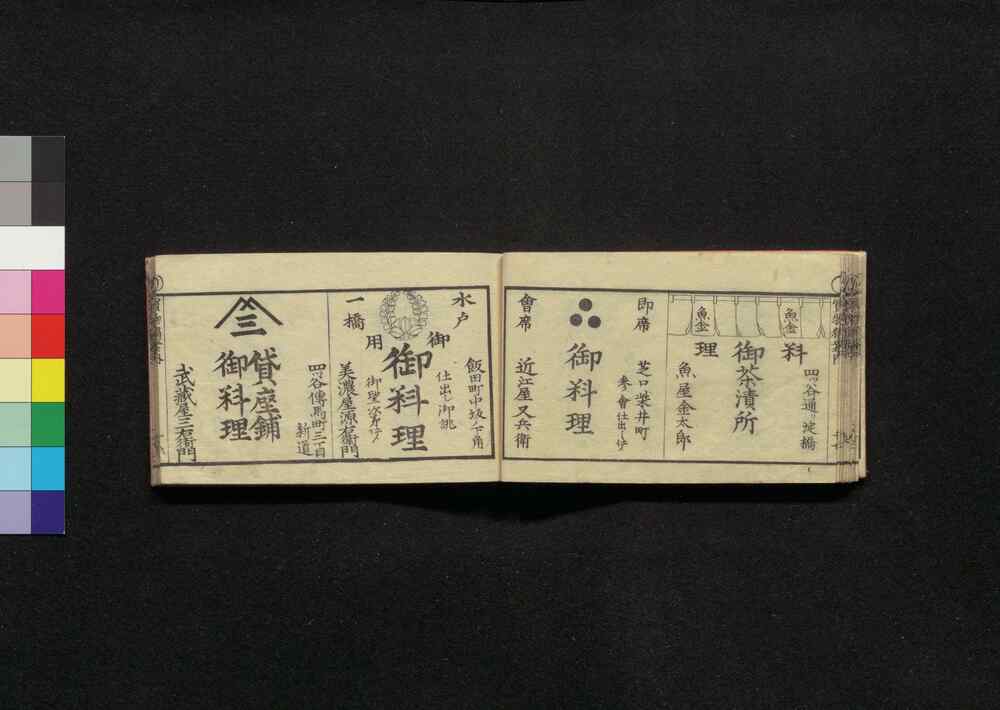 四ッ谷通り淀橋
魚金
魚金
料
理
御茶漬所
魚屋金太郎
即席
芝口柴井町
参會仕出し仕
御料理
會席
近江屋又兵衛
水戸
一橋
御
用
飯田町中坂ノ下角
仕出し御誂
御料理
御望次第
美濃屋源右衛門
四ッ谷傳馬町三丁目
新道
貸座舗
御料理
三
武蔵屋三右衛門